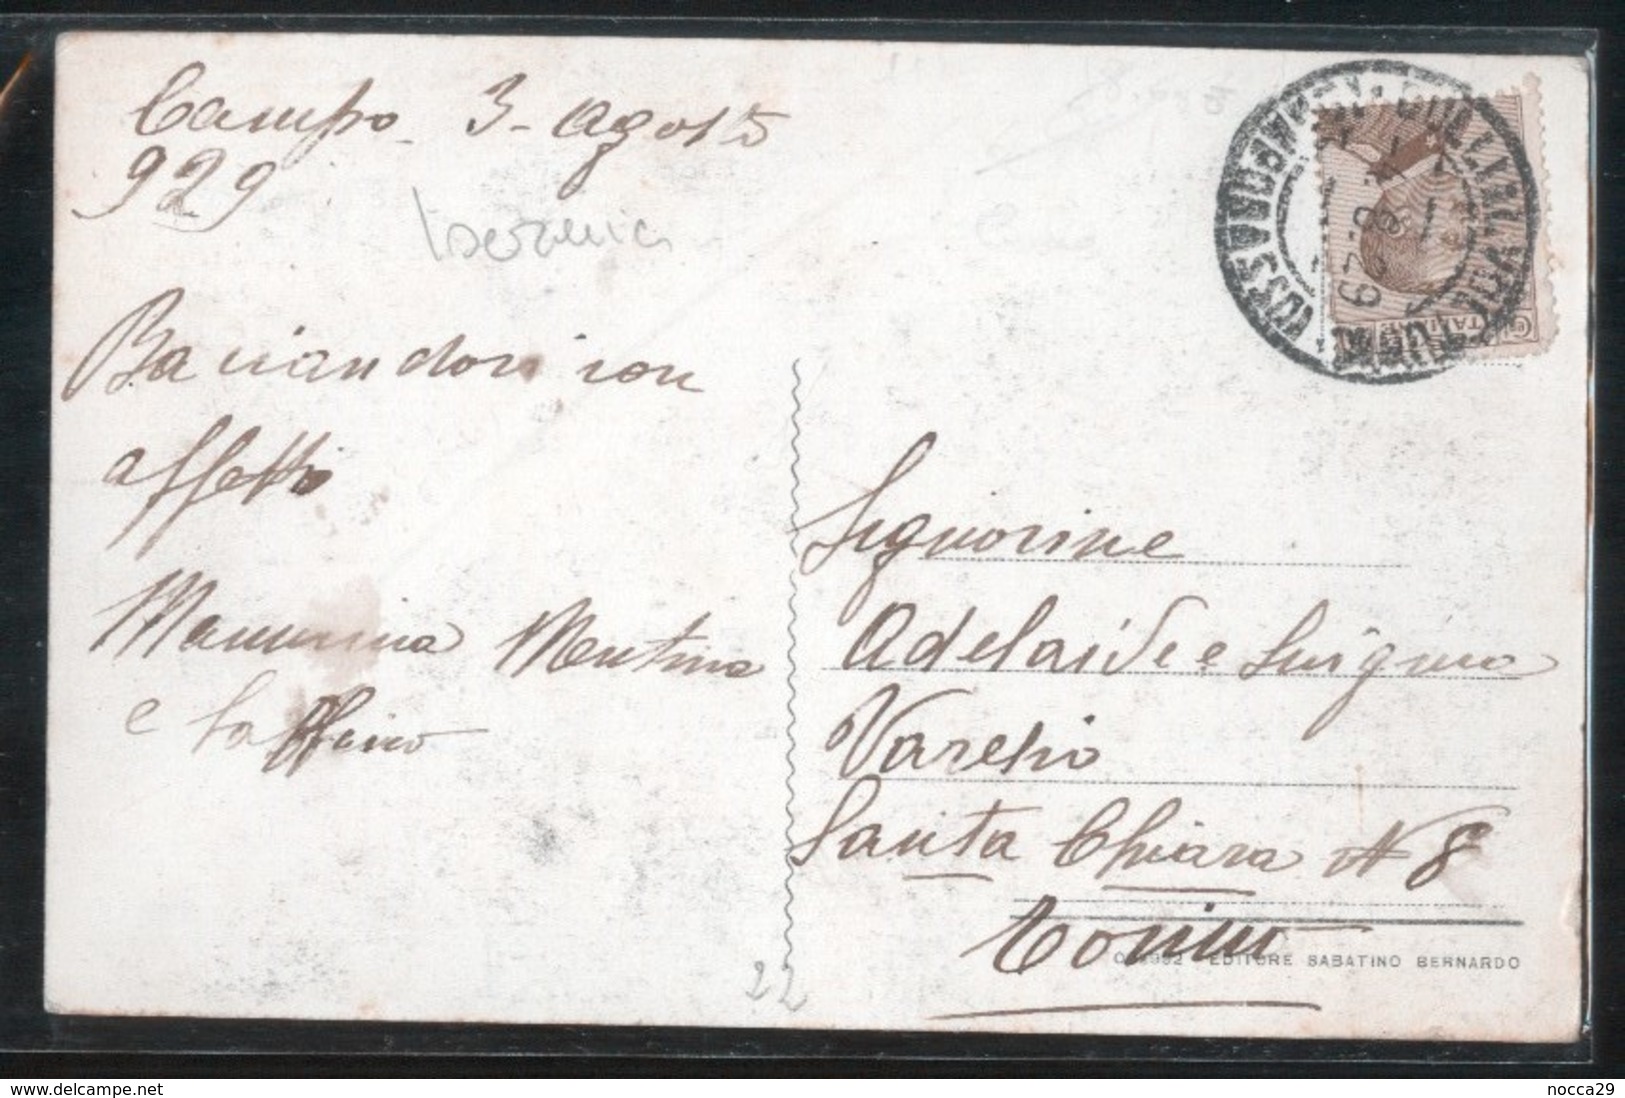 Campo 3- Agosto
929
Isernia
Baciandovi con
affetto
Mammina Mentina
e
Signorine
Adelaide e Luigina
Varesio
Santa Chiara N 8
Torino
EDITORE SABATINO BERNARDO
22
nocca29